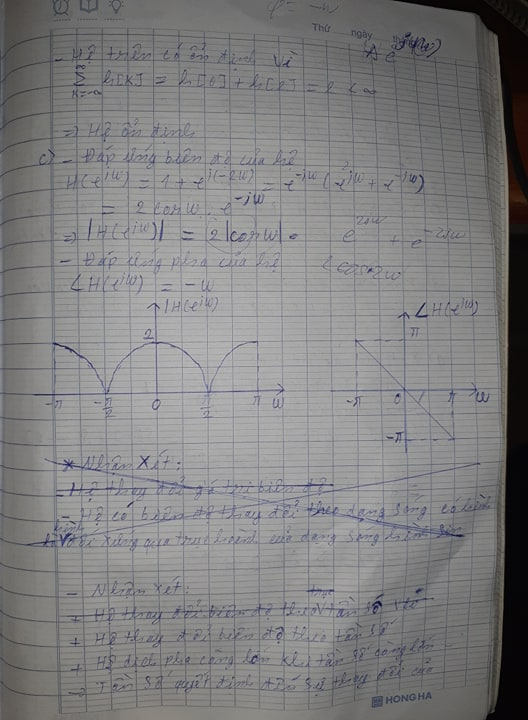 φ = -w
Thứ ngày
- Hệ trên có ổn định vì
∑ h[k] = h[0] + h[2] = 2 < ∞
k=-∞
=> Hệ ổn định
c) - Đáp ứng biên độ của hệ
H(e^jw) = 1 + e^j(-2w) = e^-jw (e^jw + e^-jw)
= 2cosw . e^-jw
=> |H(e^jw)| = 2|cosw|
- Đáp ứng pha của hệ
∠H(e^jw) = -w
|H(e^jw)| ∠H(e^jw)
2 π
-π -π/2 0 π/2 π w -π 0 π w
-π
* Nhận xét:
- Hệ thay đổi giá trị biên độ
- Hệ có biên độ thay đổi theo dạng sóng có hình
đối xứng qua trục hoành của dạng sóng hình sin
- Nhận xét:
+ Hệ thay đổi biên độ theo tần số
+ Hệ thay đổi biên độ theo tần số
+ Hệ dịch pha càng lớn khi tần số càng lớn
=> Tần số quyết định đến sự thay đổi của
HONG HA